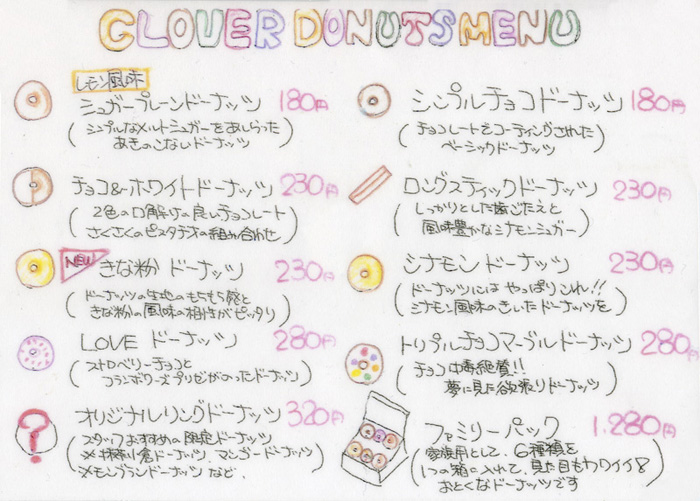 CLOVER DONUTS MENU
レモン風味
シュガープレーンドーナッツ 180円
(シンプルなメルトシュガーをあしらった
あきのこないドーナッツ)
チョコ&ホワイトドーナッツ 230円
(2色の口解けの良いチョコレート
さくさくのピスタチオの組み合わせ)
NEW きな粉ドーナッツ 230円
(ドーナッツの生地のもちもち感と
きな粉の風味の相性がピッタリ)
LOVE ドーナッツ 280円
(ストロベリーチョコと
フランボワーズプリゼがのったドーナッツ)
? オリジナルリングドーナッツ 320円
(スタッフおすすめの限定ドーナッツ
ドーナッツ、マンゴードーナッツ
メモンブランドーナッツ など。)
シンプルチョコドーナッツ 180円
(チョコレートをコーティングされた
ベーシックドーナッツ)
ロングスティックドーナッツ 230円
(しっかりとした歯ごたえと
風味豊かなシナモンシュガー)
シナモンドーナッツ 230円
(ドーナッツには やっぱりこれ!!
シナモン風味のきいたドーナッツを)
トリプルチョコマーブルドーナッツ 280円
(チョコ中毒絶賛!!
夢に見た欲張りドーナッツ)
ファミリーパック 1.280円
(家族用として、6種類を
1つの箱に入れて、見た目もカワイイ&
おとくなドーナッツです)